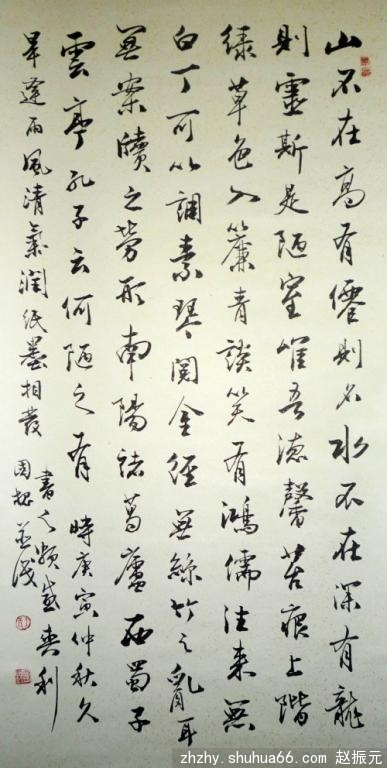 山不在高有僊則名水不在深有龍
則靈斯是陋室惟吾德馨苔痕上階
緑草色入簾青談笑有鴻儒往来無
白丁可以調素琴閱金經無絲竹之亂耳
無案牘之勞形南陽諸葛廬西蜀子
雲亭孔子云何陋之有 時庚寅仲秋久
旱逢雨風清氣潤紙墨相發
書之頗感爽利
zhzhy.shuhua66.com 赵振元